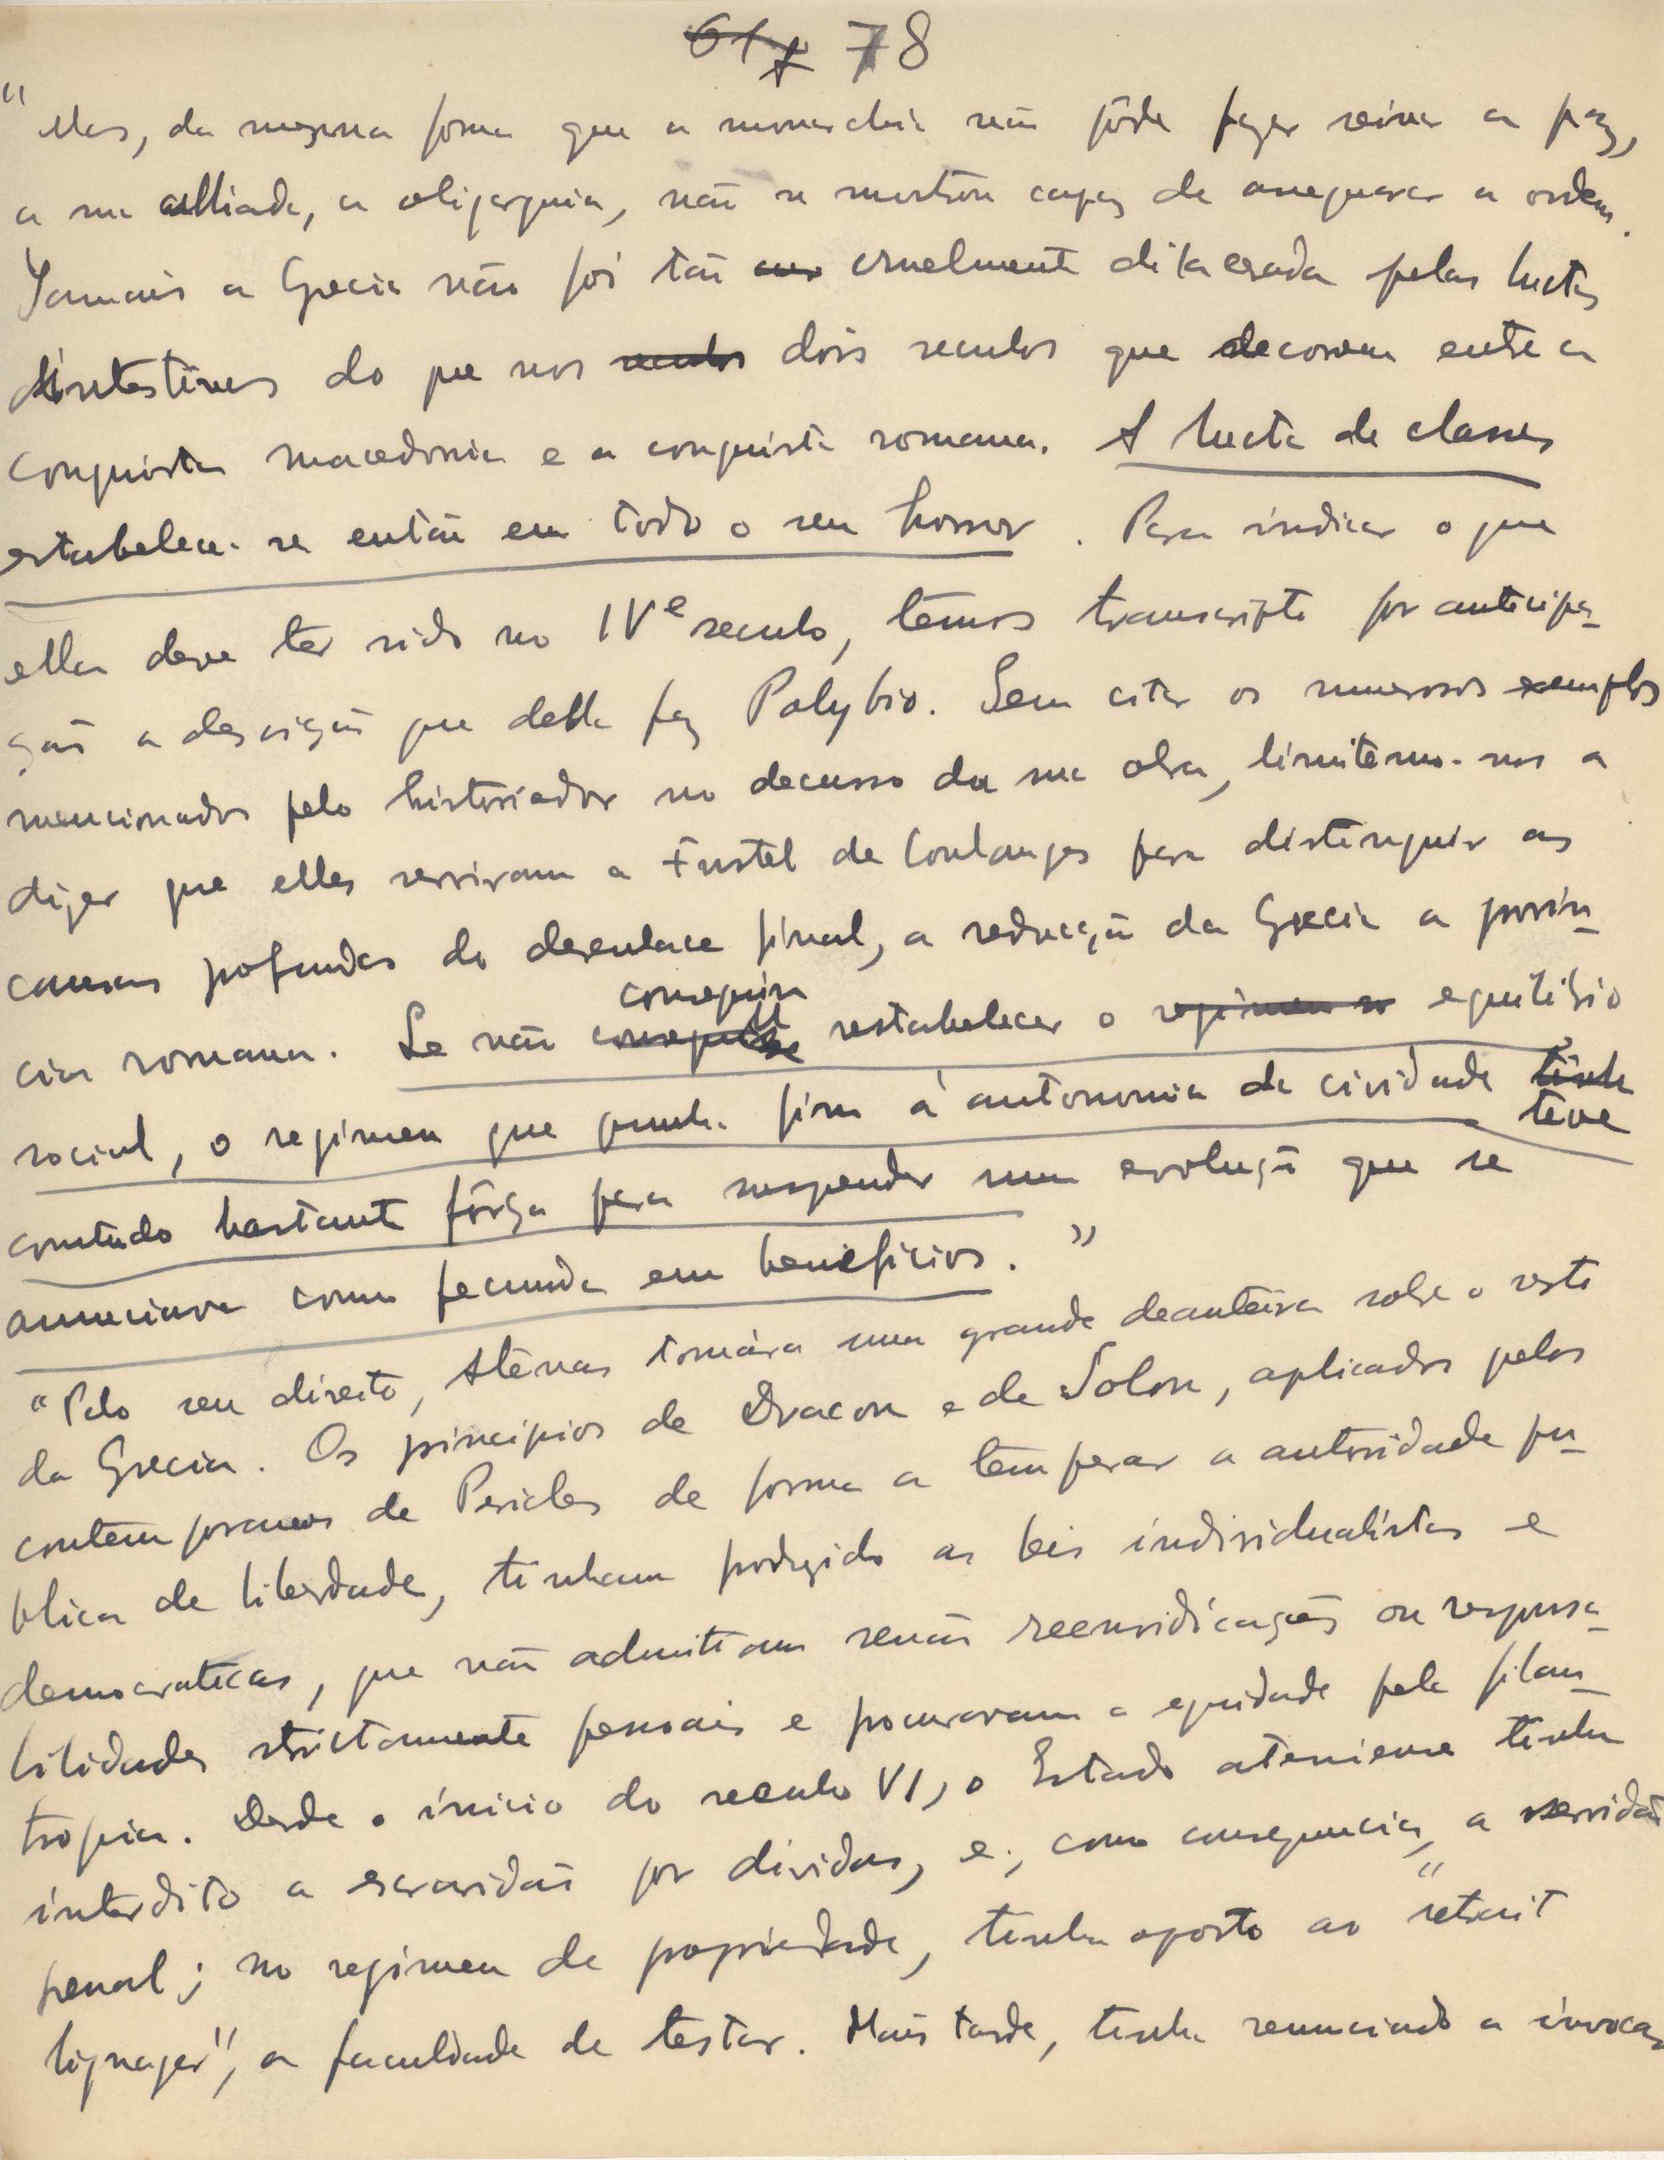 617 78
"Mas, da mesma forma que a monarchia não pôde fazer reinar a paz,
a sua alliada, a oligarquia, não se mostrou capaz de assegurar a ordem.
Jamais a Grecia não foi tão cruelmente dilacerada pelas luctas
intestinas do que nos seculos dois seculos que decorrem entre a
conquista macedonia e a conquista romana. A lucta de classes
estabelece-se então em todo o seu horror. Para indicar o que
ella deve ter sido no IVe seculo, temos transcripto por anticipa-
ção a descripção que della faz Polybio. Sem citar os numerosos exemplos
mencionados pelo historiador no decurso da sua obra, limitemo-nos a
dizer que elles serviram a Fustel de Coulanges para distinguir as
causas profundas do desenlace final, a reducção da Grecia a provin-
conseguiu
cia romana. Se não restabelecer o regimen so equilibrio
social, o regimen que punha fim á autonomia da cividade tinha
teve
comtudo bastante fôrça para suspender uma evolução que se
annunciava como fecunda em beneficios."
"Pelo seu direito, Atenas tomára uma grande deanteira sobre o resto
da Grecia. Os principios de Dracon e de Solon, aplicados pelos
contemporaneos de Pericles de forma a temperar a autoridade pu-
blica de liberdade, tinham produzido as leis individualistas e
democraticas, que não admittiam senão reenvidicações ou responsa-
bilidades strictamente pessoais e procuravam a equidade pela filan-
tropia. Desde o inicio do seculo VI, o Estado ateniense tinha
interdito a escravidão por dividas, e, como consequencia, a servidão
penal; no regimen de propriedade, tinha oposto ao "retrait
lignager", a faculdade de testar. Mais tarde, tinha renunciado a invocar